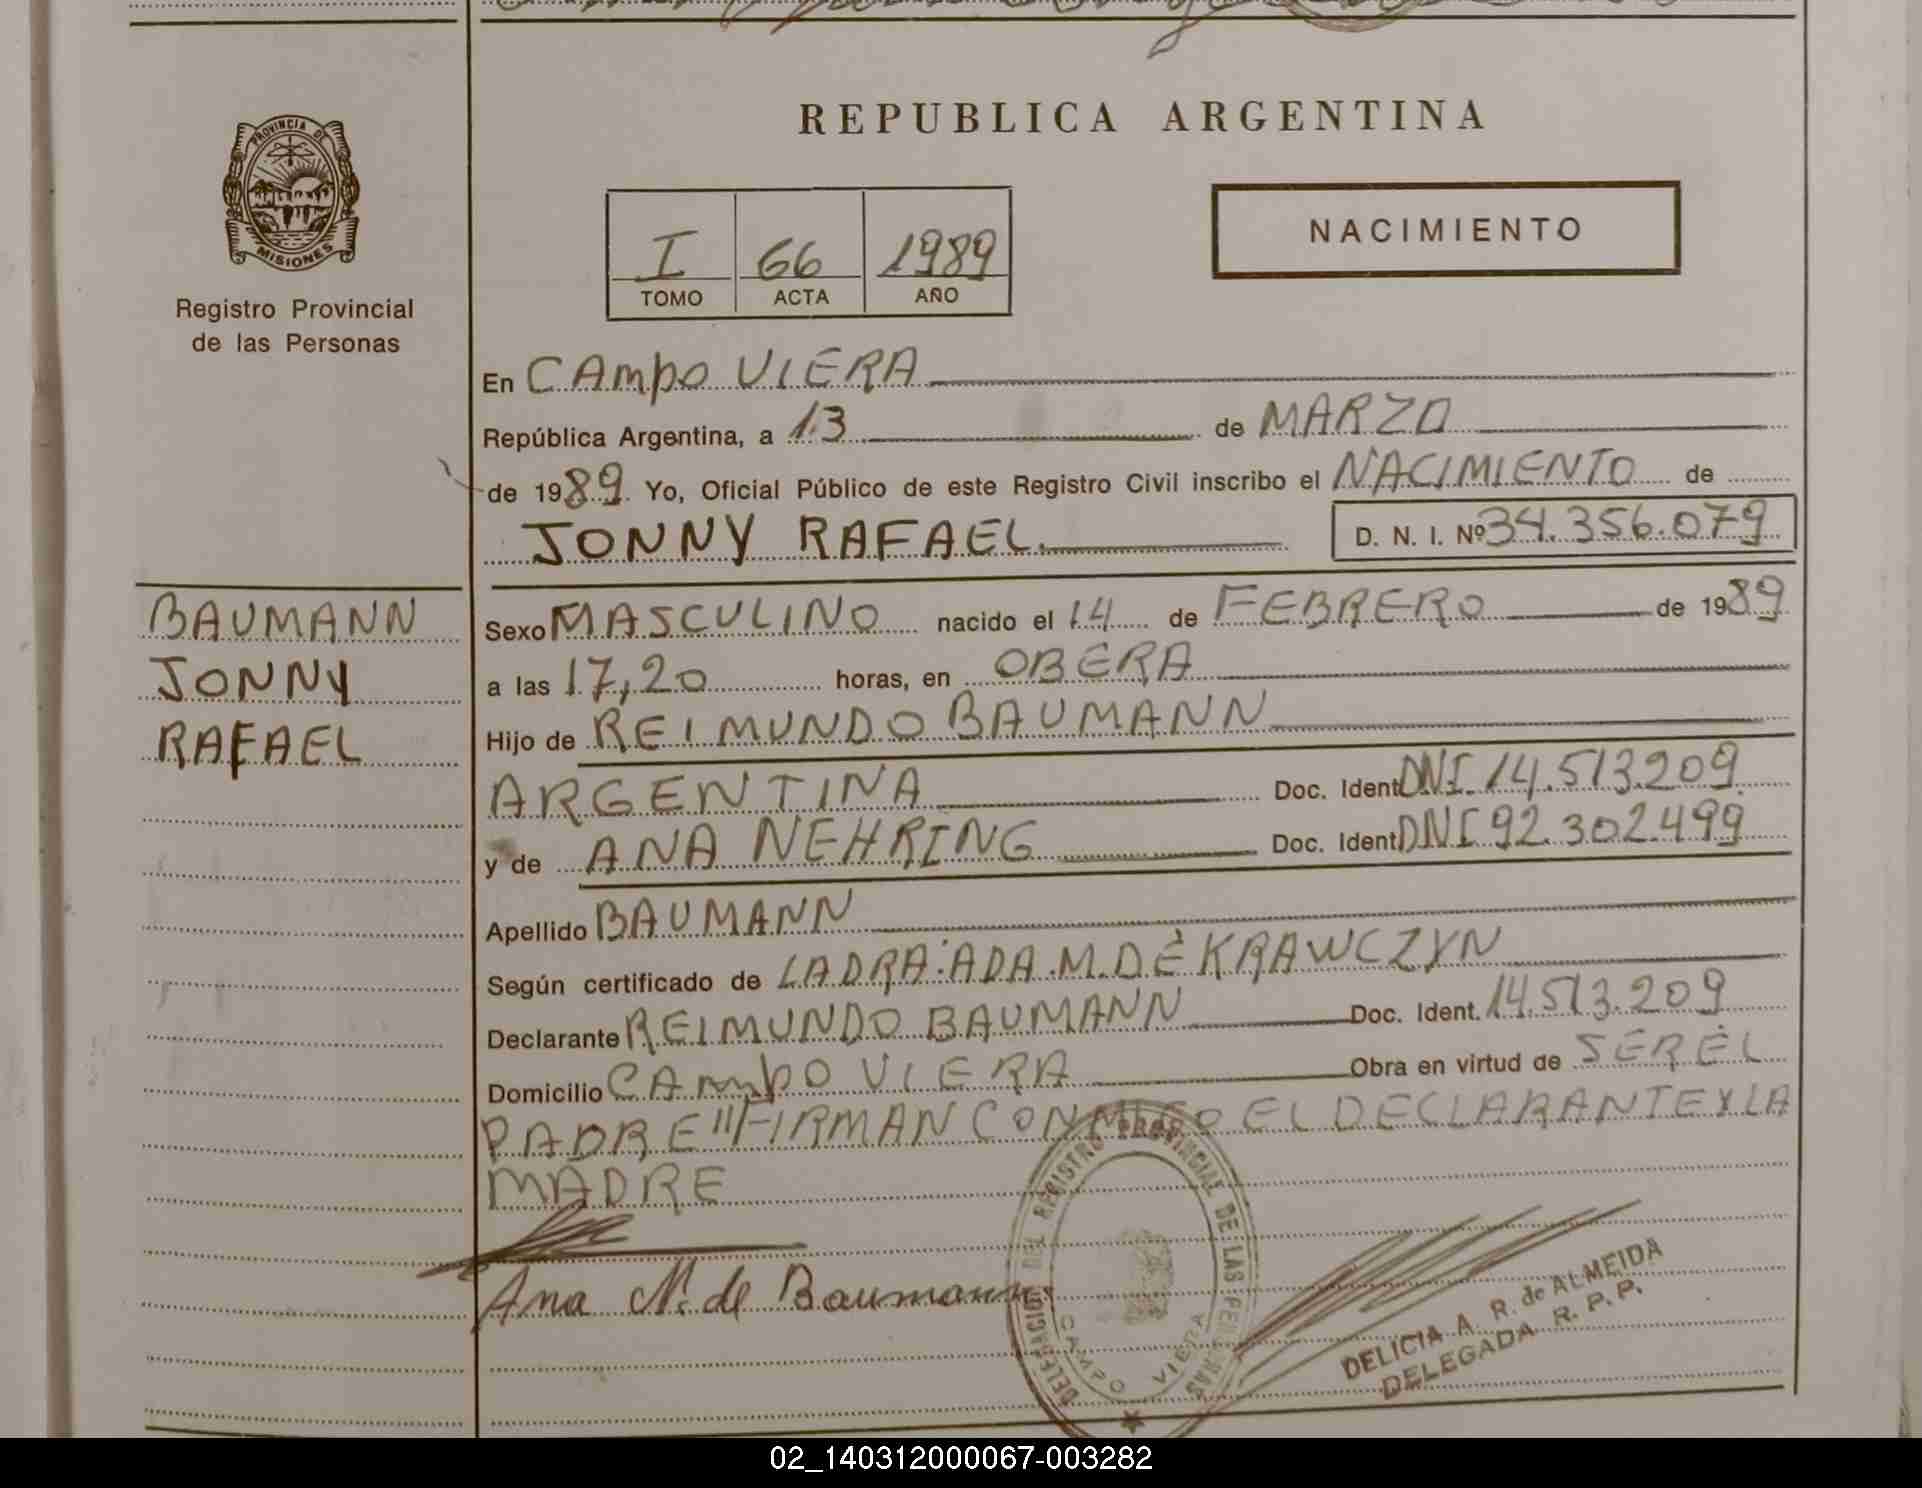 REPUBLICA ARGENTINA
PROVINCIA DE
MISIONES
Registro Provincial
de las Personas
I 66 1989
TOMO ACTA AÑO
NACIMIENTO
En CAmpo VIERA
República Argentina, a 13 de MARZO
de 1989. Yo, Oficial Público de este Registro Civil inscribo el NACIMIENTO de
JONNY RAFAEL.
D. N. I. Nº 34.356.079
BAUMANN
JONNY
RAFAEL
Sexo MASCULINO nacido el 14 de FEBRERO de 1989
a las 17,20 horas, en OBERA
Hijo de REIMUNDO BAUMANN
ARGENTINA Doc. Ident DNI. 14.513.209
y de ANA NEHRING Doc. Ident DNI 92.302.499
Apellido BAUMANN
Según certificado de LA DRA. ADA.M.DE KRAWCZYN
Declarante REIMUNDO BAUMANN Doc. Ident. 14.513.209
Domicilio CAmpo VIERA Obra en virtud de SER EL
PADRE"FIRMAN CONMIGO EL DECLARANTE Y LA
MADRE
Ana N. de Baumann
REGISTRO PROVINCIAL DE LAS
CAMPO VIERA
DELICIA A. R. de ALMEIDA
DELEGADA R. P. P.
02_140312000067-003282